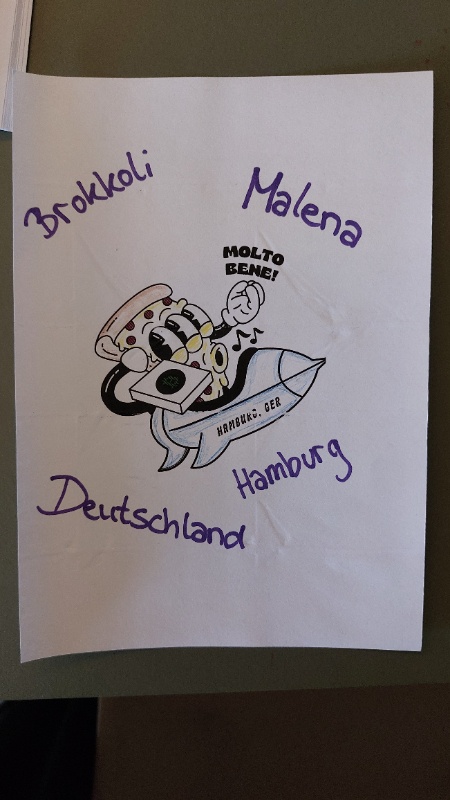 Brokkoli
Malena
MOLTO
BENE!
HAMBURG, GER
Hamburg
Deutschland